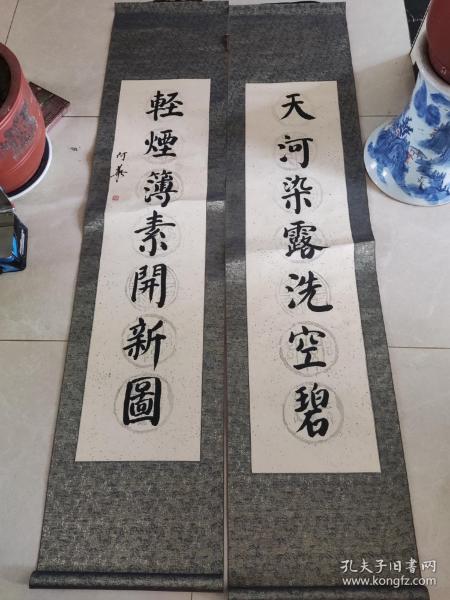 天河染露洗空碧
輕煙簿素開新圖
孔夫子旧书网
www.kongfz.com